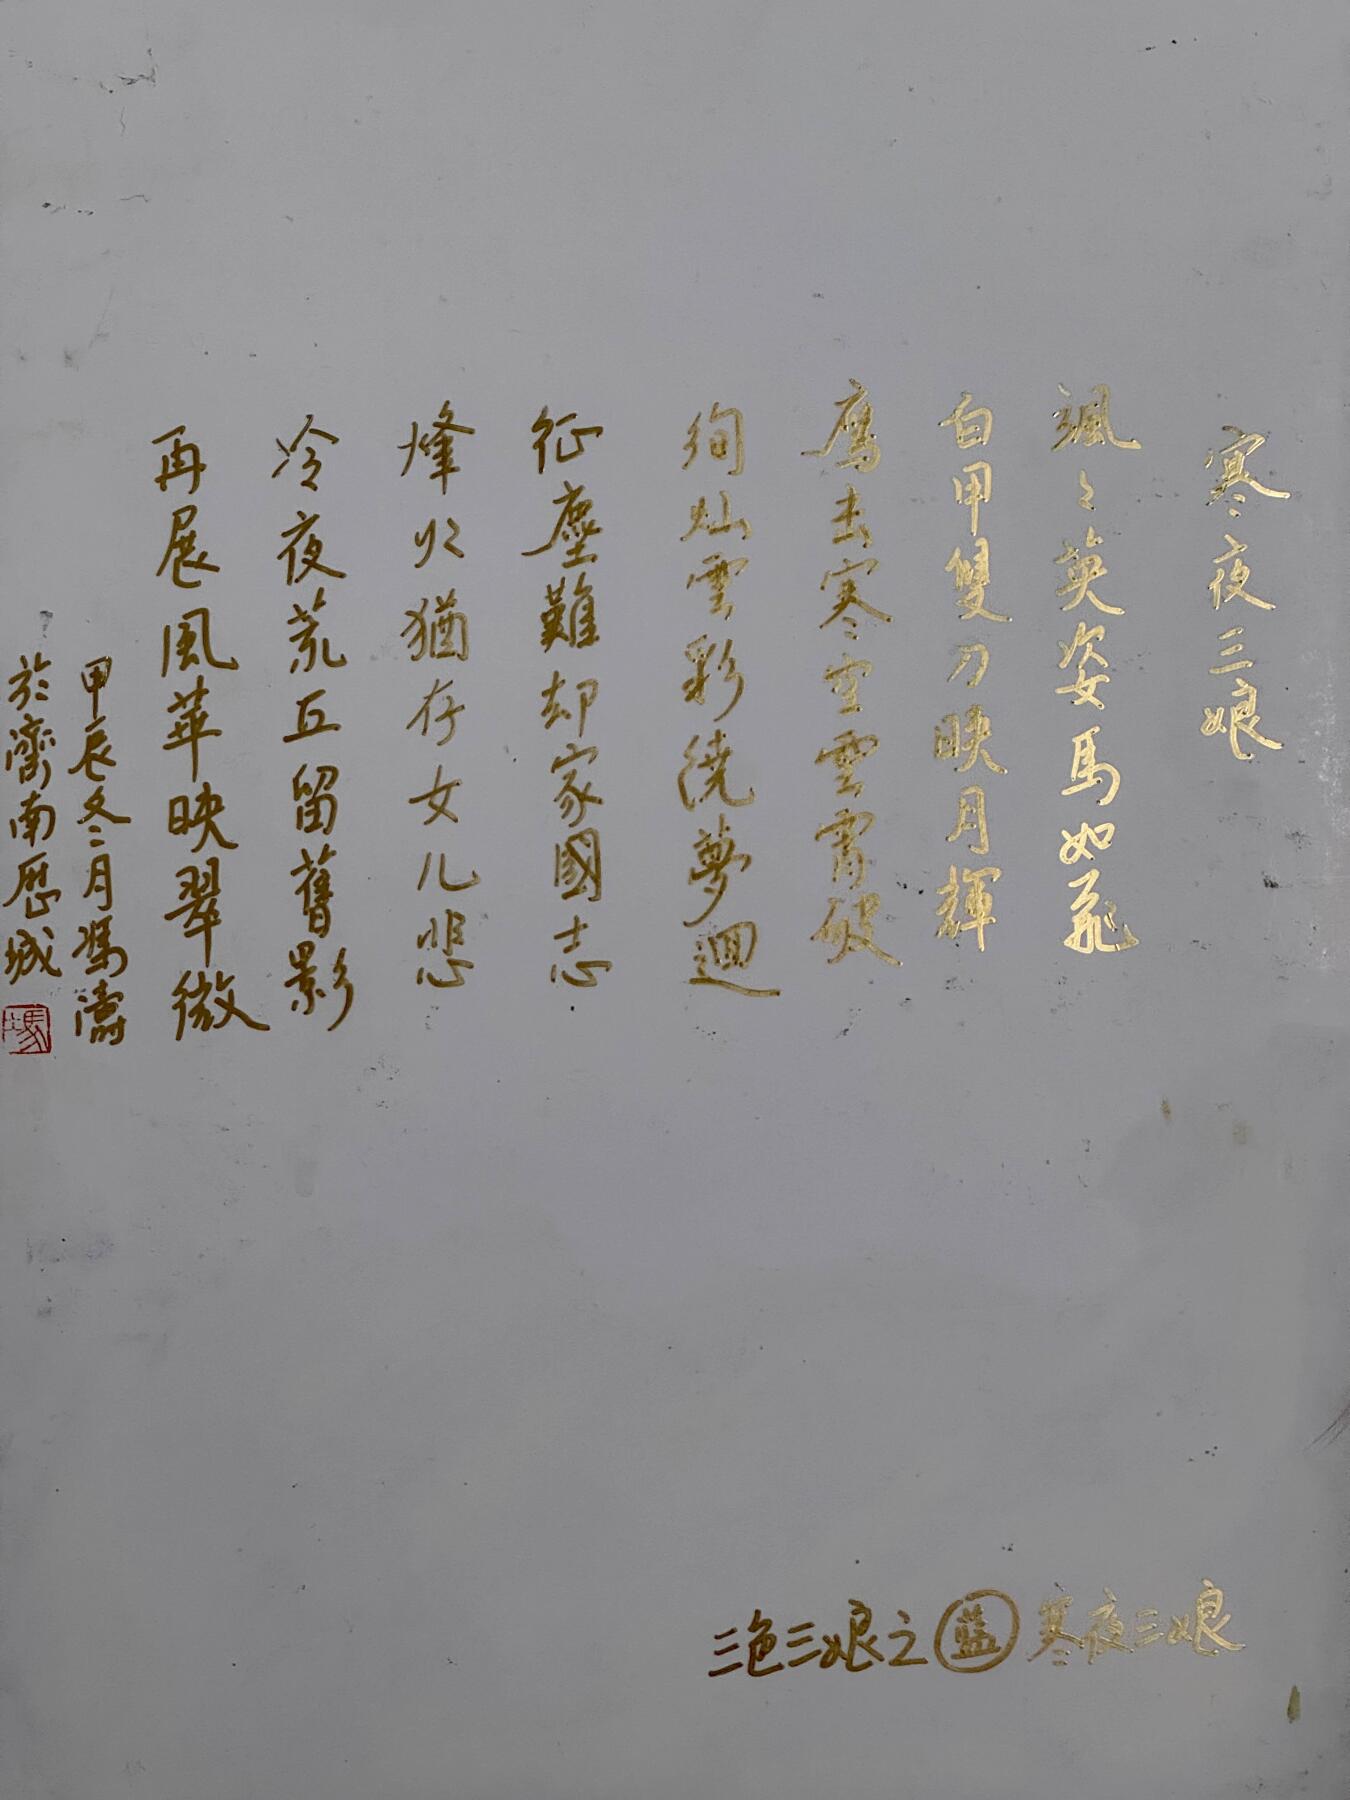 寒夜三娘
颯々英姿馬如飛
白甲雙刀映月輝
鹰击寒空雲霄破
绚灿雲彩绕夢迴
征塵難却家國志
烽火猶存女儿悲
冷夜荒丘留舊影
再展風華映翠微
甲辰冬月馮濤
於濟南历城
三色三娘之蓝寒夜三娘